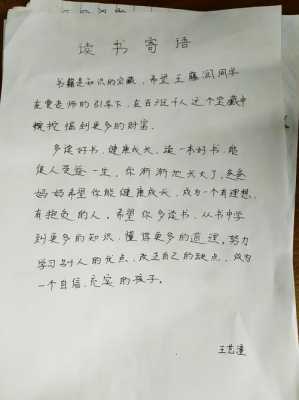 读书寄语
书籍是知识的宝藏，希望王藤润同学
在费老师的引导下，在百班千人这个宝藏中
挖到更多的财富。
多读好书，健康成长，读一本好书，能
使人受益一生，你渐渐地长大了，爸爸
妈妈希望你能健康成长，成为一个有理想、
有抱负的人。希望你多读书，从书中学
到更多的知识，懂得更多的道理，努力
学习别人的优点，改正自己的缺点，做为
一个自信、充实的孩子。
王艺潼